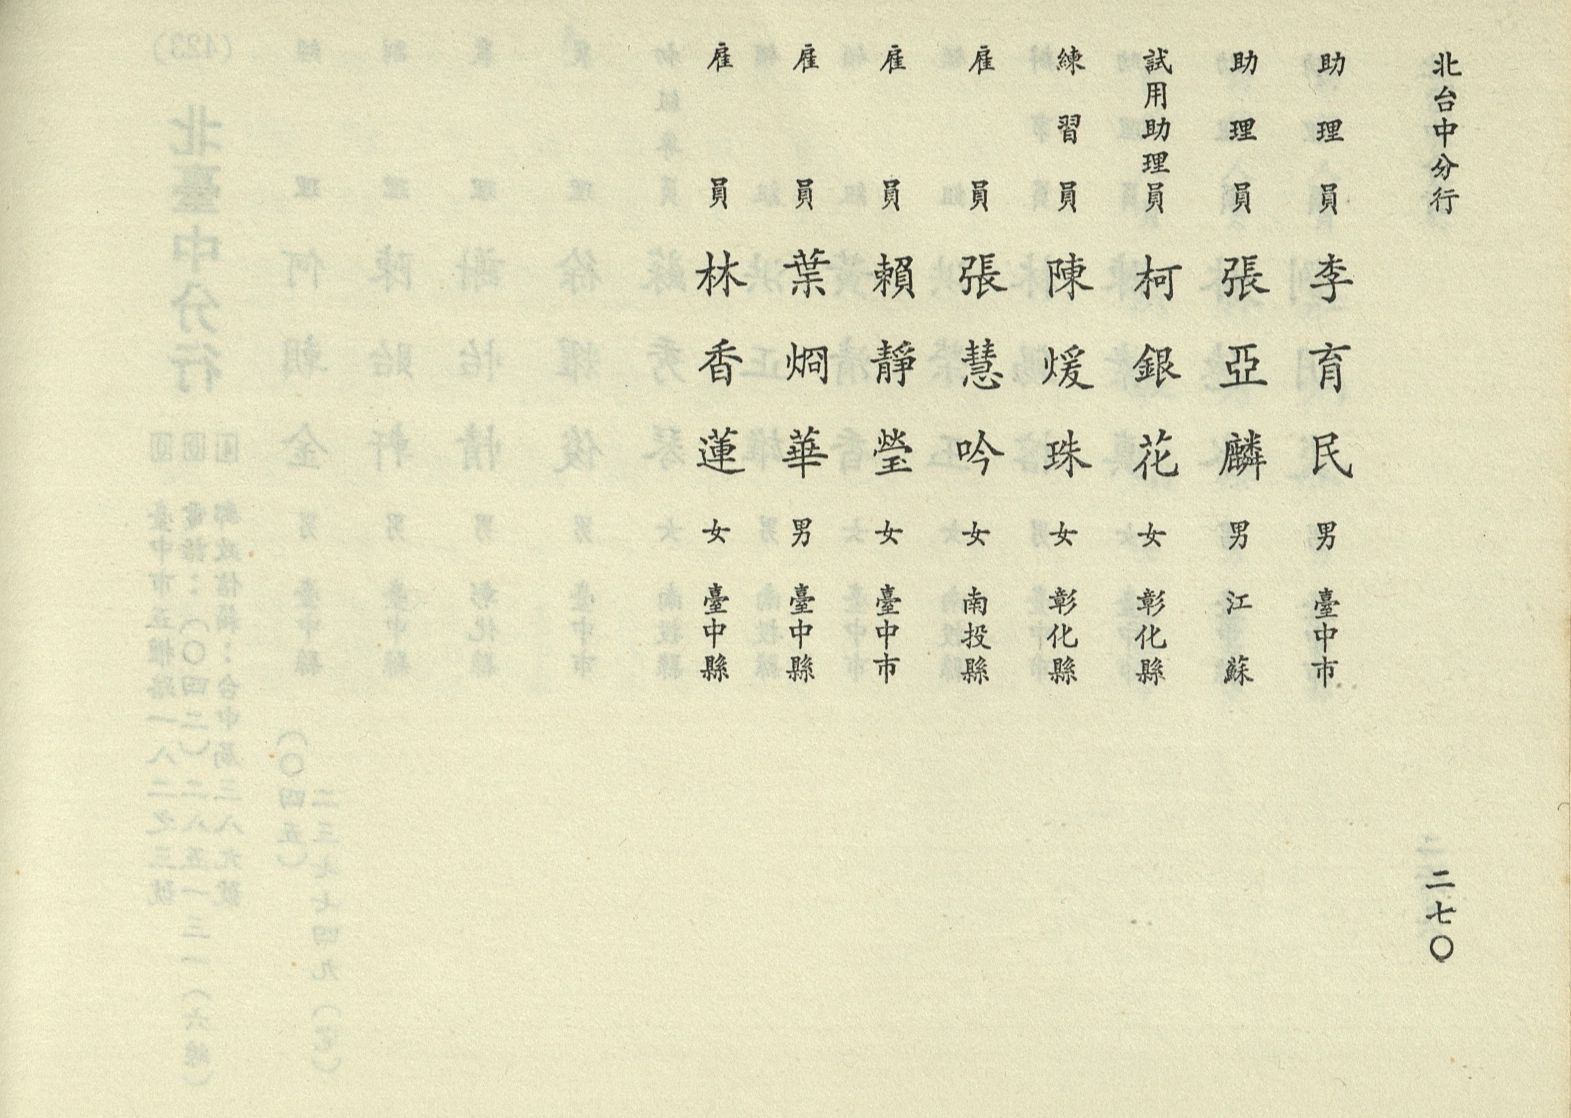 北台中分行
二七〇
助理員 李育民 男 臺中市
助理員 張亞麟 男 江蘇
試用助理員 柯銀花 女 彰化縣
練習員 陳煖珠 女 彰化縣
雇員 張慧吟 女 南投縣
雇員 賴靜瑩 女 臺中市
雇員 葉烱華 男 臺中縣
雇員 林香蓮 女 臺中縣